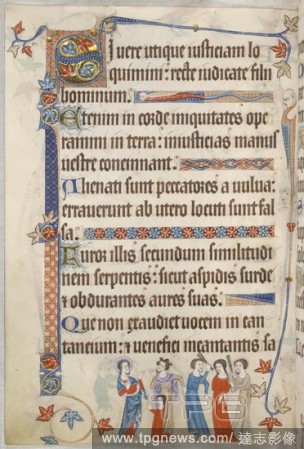 Si vere utique iusticiam lo
quimini: recte iudicate filii
hominum.
Etenim in corde iniquitates ope
ramini in terra: iniusticias manus
vestre concinnant.
Alienati sunt peccatores a vulva:
erraverunt ab utero locuti sunt fal
sa.
Furor illis secundum similitudi
nem serpentis: sicut aspidis surde
et obdurantes aures suas.
Que non exaudiet vocem in can
tancium: et venefici incantantis sa
TPG
www.tpgnews.com/ 達志影像